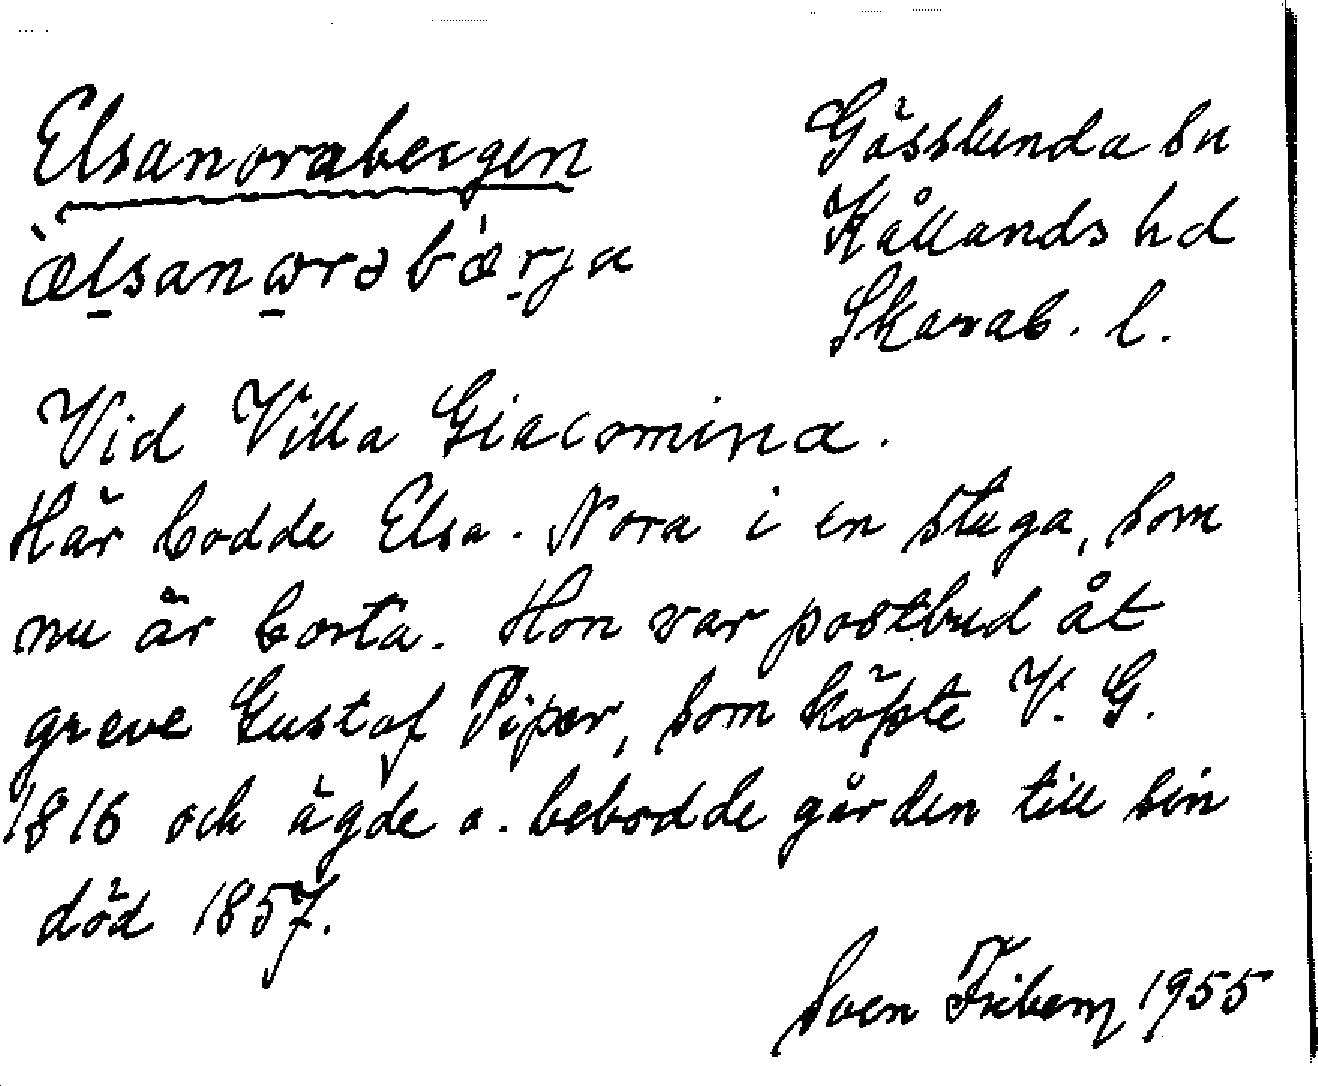 Elsanorabergen
Gösslunda sn
Kållands hd
Skarab. l.
Vid Villa Giacomina.
Här bodde Elsa-Nora i en stuga, som
nu är borta. Hon var postbud åt
greve Gustaf Piper, som köpte V. G.
1816 och ägde o. bebodde gården till sin
död 1857.
Sven Friberg 1955